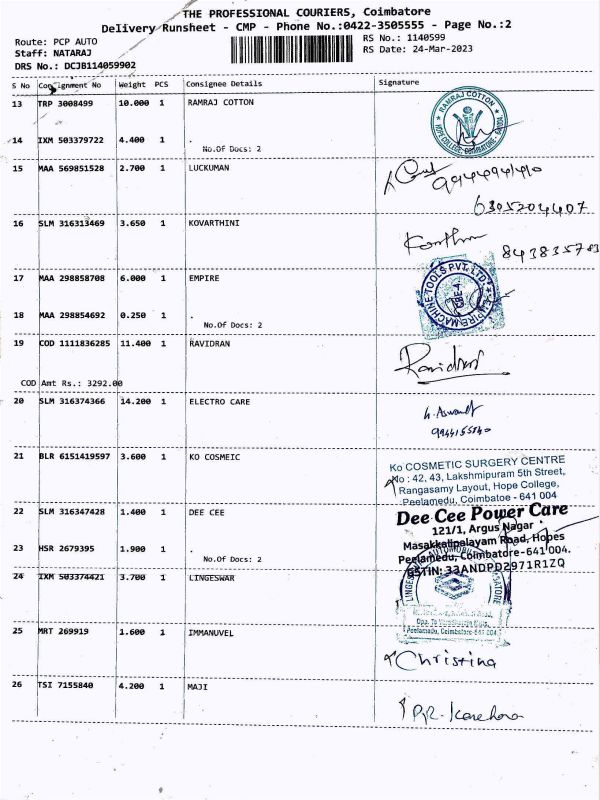 THE PROFESSIONAL COURIERS, Coimbatore
Delivery Runsheet - CMP - Phone No.:0422-3505555 - Page No.:2
Route: PCP AUTO
RS No.: 1140599
Staff: NATARAJ
RS Date: 24-Mar-2023
DRS No.: DCJB114059902
S No Consignment No Weight PCS Consignee Details Signature
13 TRP 3008499 10.000 1 RAMRAJ COTTON
RAMRAJ COTTON
HOPE COLLEGE, COIMBATORE
14 IXM 503379722 4.400 1 .
No.Of Docs: 2
15 MAA 569851528 2.700 1 LUCKUMAN
6305204407
16 SLM 316313469 3.650 1 KOVARTHINI
17 MAA 298858708 6.000 1 EMPIRE
EMPIRE MACHINE TOOLS PVT. LTD.
CBE-4
18 MAA 298854692 0.250 1 .
No.Of Docs: 2
19 COD 1111836285 11.400 1 RAVIDRAN
Ravidran
COD Amt Rs.: 3292.00
20 SLM 316374366 14.200 1 ELECTRO CARE
9944155840
21 BLR 6151419597 3.600 1 KO COSMEIC
Ko COSMETIC SURGERY CENTRE
No : 42, 43, Lakshmipuram 5th Street,
Rangasamy Layout, Hope College,
Peelamedu, Coimbatoe - 641 004
22 SLM 316347428 1.400 1 DEE CEE
Dee Cee Power Care
121/1, Argus Nagar
Masakkalipalayam Road, Hopes
Peelamedu, Coimbatore-641 004.
GSTIN: 33ANDPD2971R1ZQ
23 HSR 2679395 1.900 1 .
No.Of Docs: 2
24 IXM 503374421 3.700 1 LINGESWAR
Peelamedu, Coimbatore-641 004
25 MRT 269919 1.600 1 IMMANUVEL
Christina
26 TSI 7155840 4.200 1 MAJI